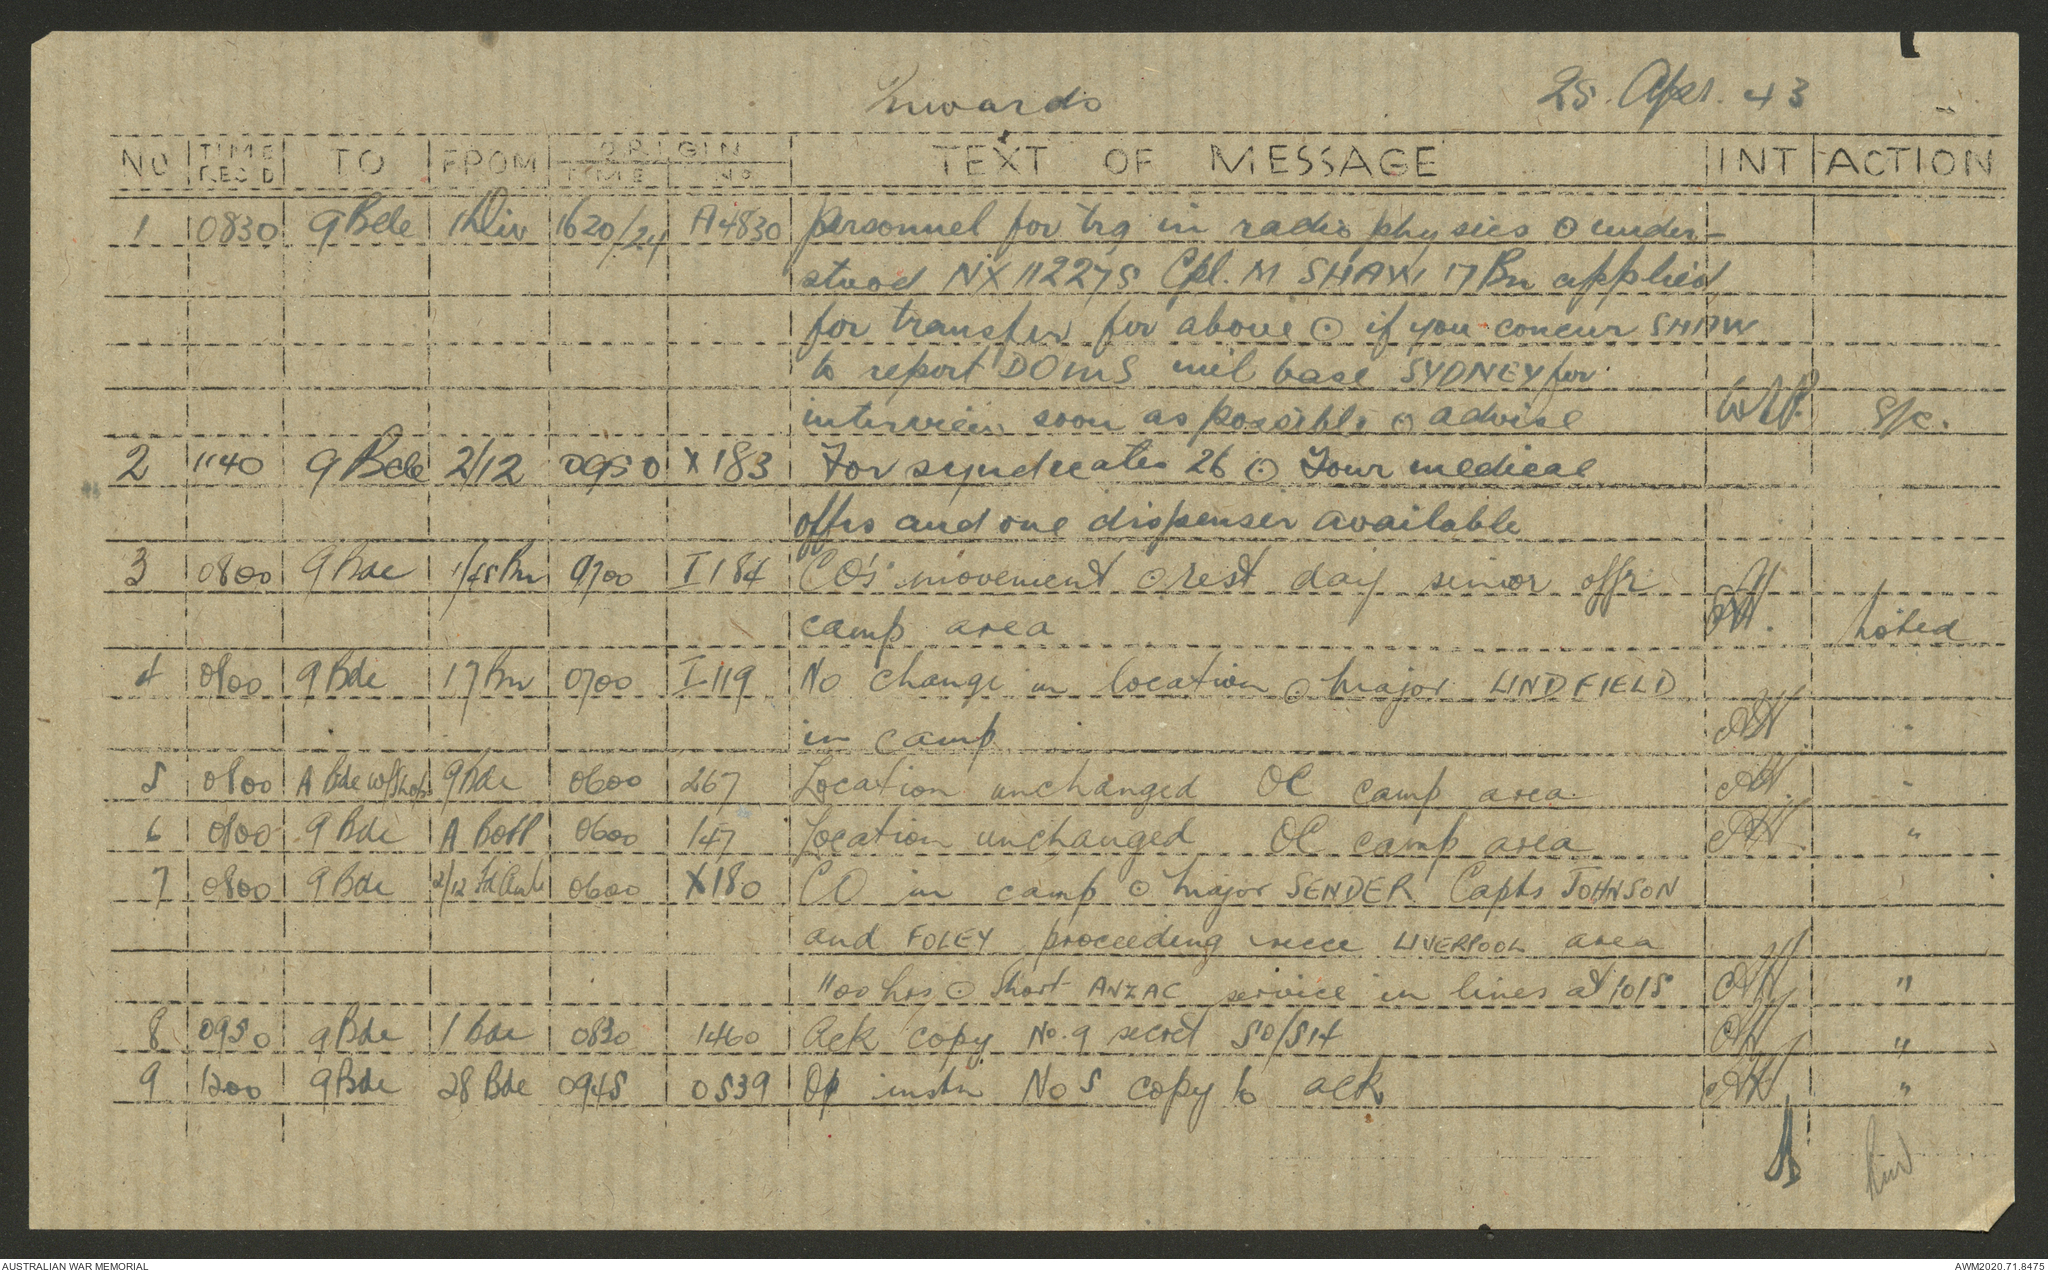 Inwards
25. Apr. 43
NO TIME REC'D TO FROM ORIGIN TIME NO TEXT OF MESSAGE INT ACTION
1 0830 9 Bde 1 Div 1620/24 A4830 personnel for trg in radio physics ⊙ under-
stood NX112275 Cpl. M SHAW 17 Bn applied
for transfer for above ⊙ if you concur SHAW
to report DOMS mil base SYDNEY for
interview soon as possible ⊙ advise S/C.
2 1140 9 Bde 2/12 0950 X183 For syndicates 26 ⊙ Four medical
offrs and one dispenser available
3 0800 9 Bde 1/45 Bn 0700 I 184 CO's movement ⊙ rest day senior offr
camp area noted
4 0800 9 Bde 17 Bn 0700 I 119 No change in location ⊙ Major LINDFIELD
in camp "
5 0800 A Bde W/Shop 9 Bde 0600 267 Location unchanged OC camp area "
6 0800 9 Bde A Bott 0600 147 Location unchanged OC camp area "
7 0800 9 Bde 2/12 Fd Amb 0600 X180 CO in camp ⊙ Major SENDER Capts JOHNSON
and FOLEY proceeding recce LIVERPOOL area
1100 hrs ⊙ Short ANZAC service in lines at 1015 "
8 0950 9 Bde 1 Bde 0830 1460 Ack copy No. 9 secret SO/514 "
9 1200 9 Bde 28 Bde 0945 0539 Op instn No 5 copy 6 ack "
AUSTRALIAN WAR MEMORIAL
AWM2020.71.8475